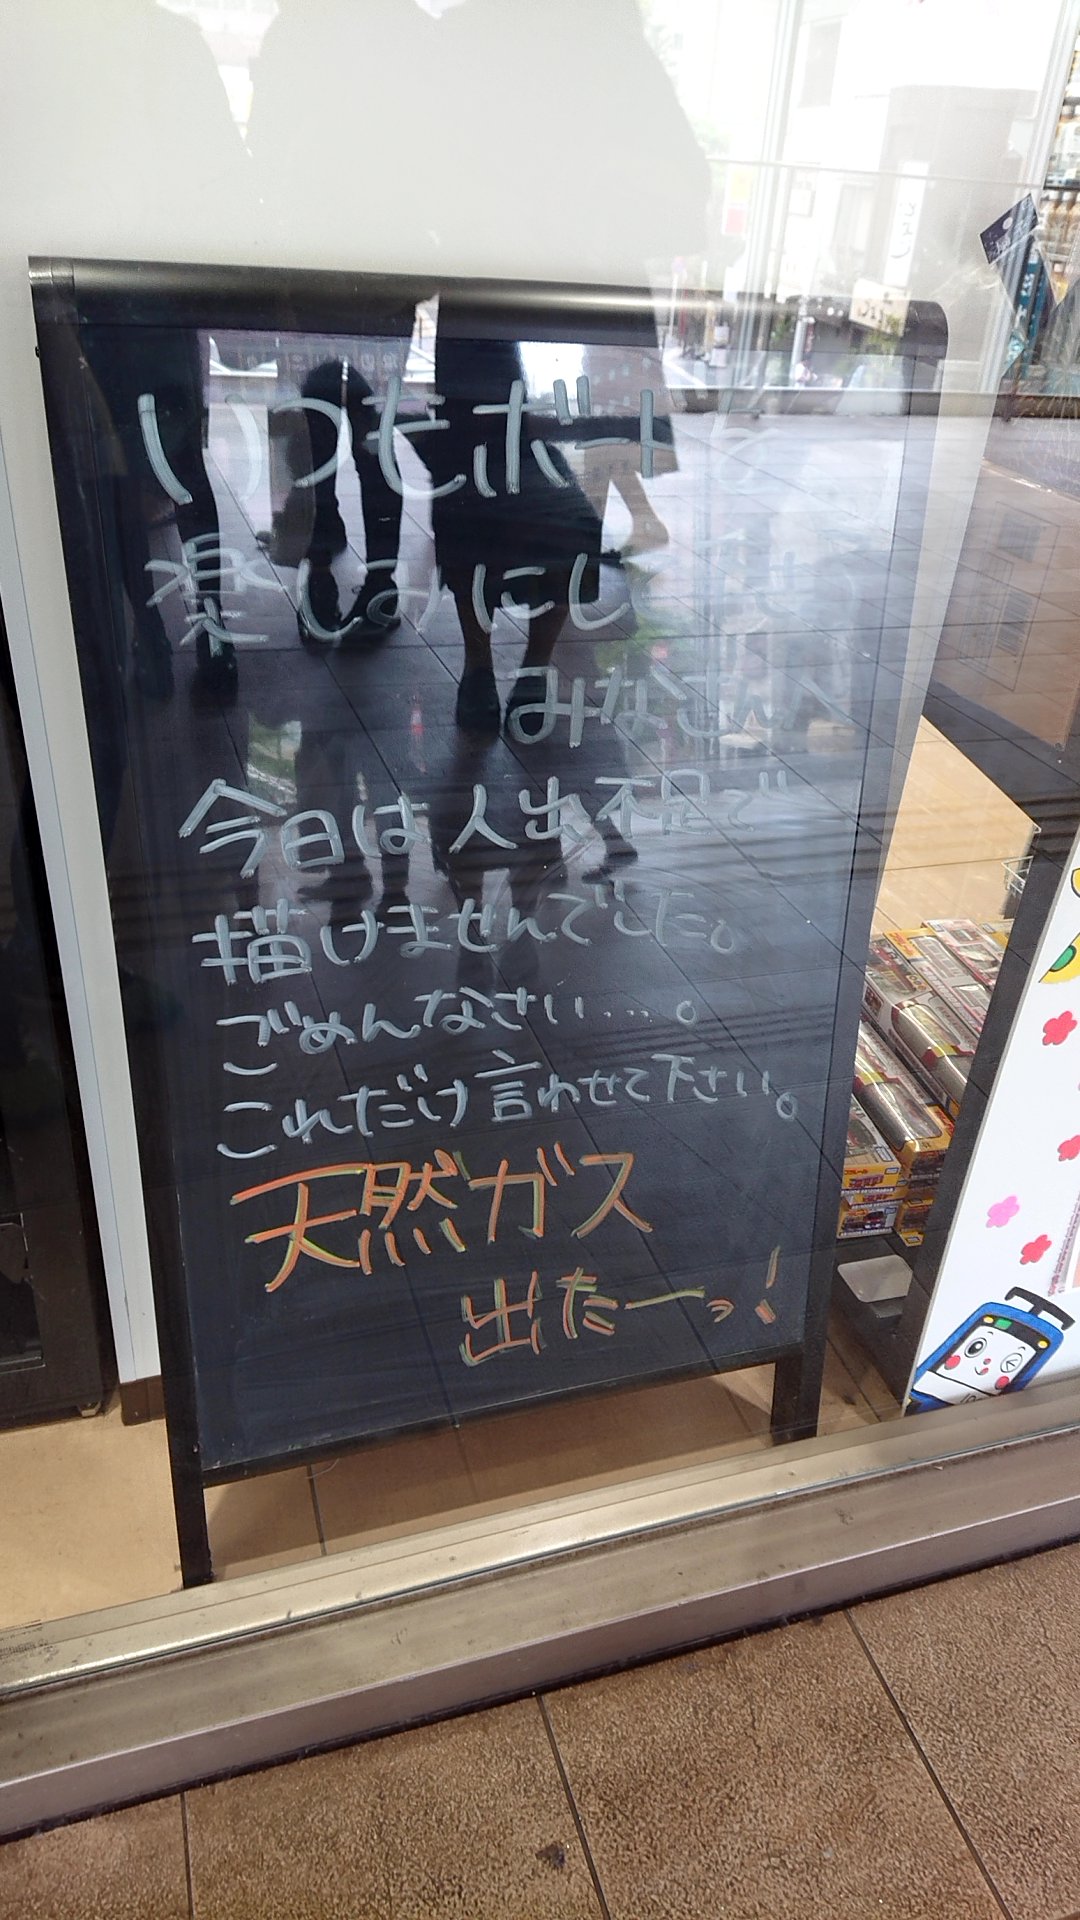 いつもボードを
楽しみにしている
みなさんへ
今日は人出不足で
描けませんでした。
ごめんなさい…。
これだけ言わせて下さい。
天然ガス
出たーっ!